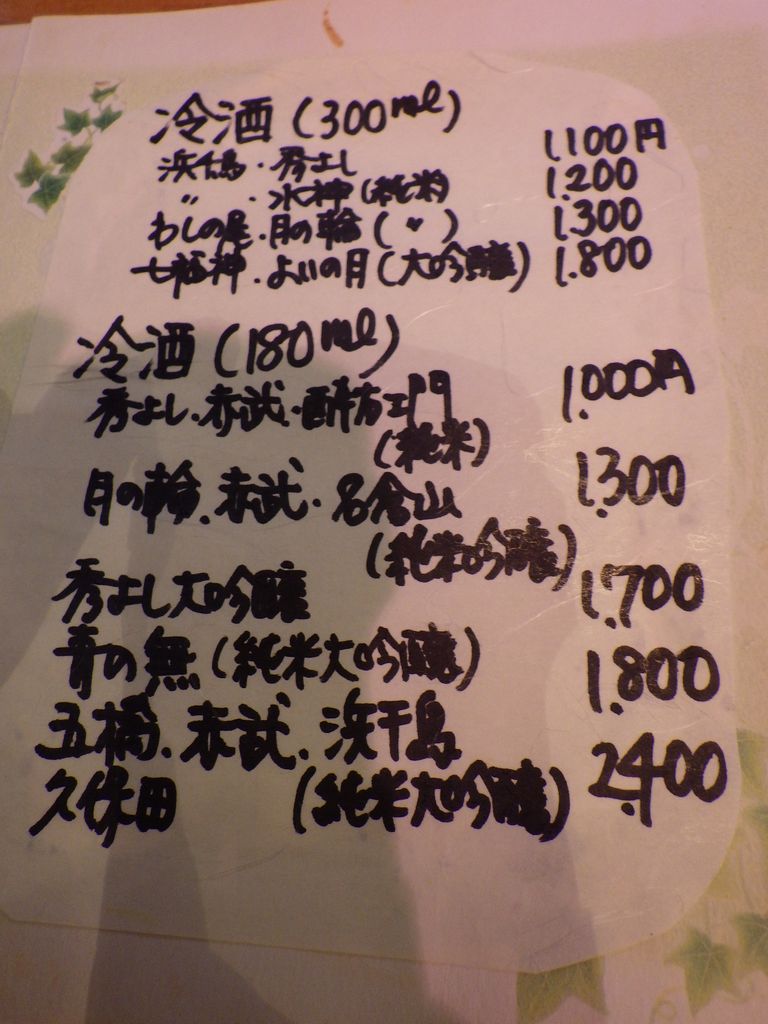 冷酒(300ml)
浜千鳥・秀よし 1,100円
〃・水神(純米) 1,200
わしの尾・月の輪(〃) 1,300
七福神・よいの月(大吟醸) 1,800
冷酒(180ml)
秀よし・赤武・酔右エ門 1,000円
(純米)
月の輪・赤武・名倉山 1,300
(純米吟醸)
秀よし大吟醸 1,700
青の無(純米大吟醸) 1,800
五橋・赤武・浜千鳥 2,400
久保田 (純米大吟醸)